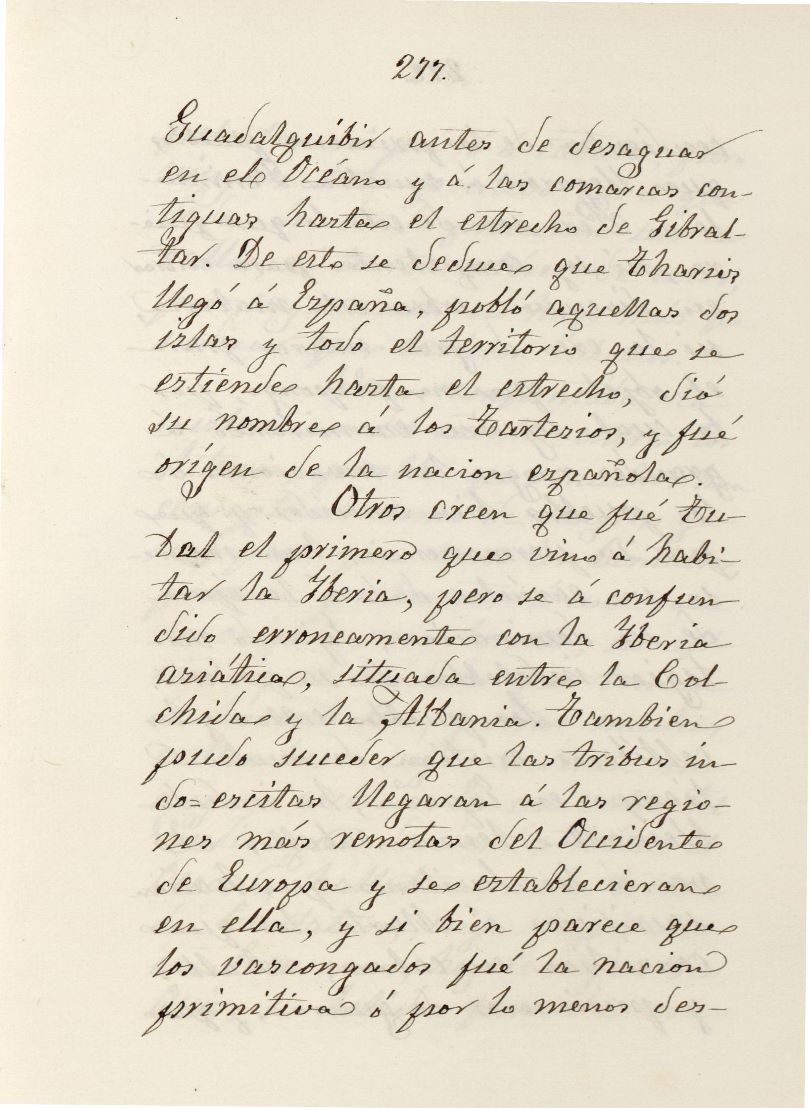 277.
Guadalquibir antes de desaguar
en el Océano y á las comarcas con-
tiguas hasta el estrecho de Gibral-
tar. De esto se deduce que Tharsis
llegó á España, pobló aquellas dos
islas y todo el territorio que se
estiende hasta el estrecho, dió
su nombre á los Tartesios, y fué
orígen de la nacion española.
Otros creen que fué Tu-
bal el primero que vino á habi-
tar la Iberia, pero se á confun
dido erroneamente con la Iberia
asiática, situada entre la Col
chida y la Albania. Tambien
pudo suceder que las tribus in-
do=escitas llegaran á las regio-
nes más remotas del Occidente
de Europa y se establecieran
en ella, y si bien parece que
los vascongados fué la nacion
primitiva ó por lo menos des-